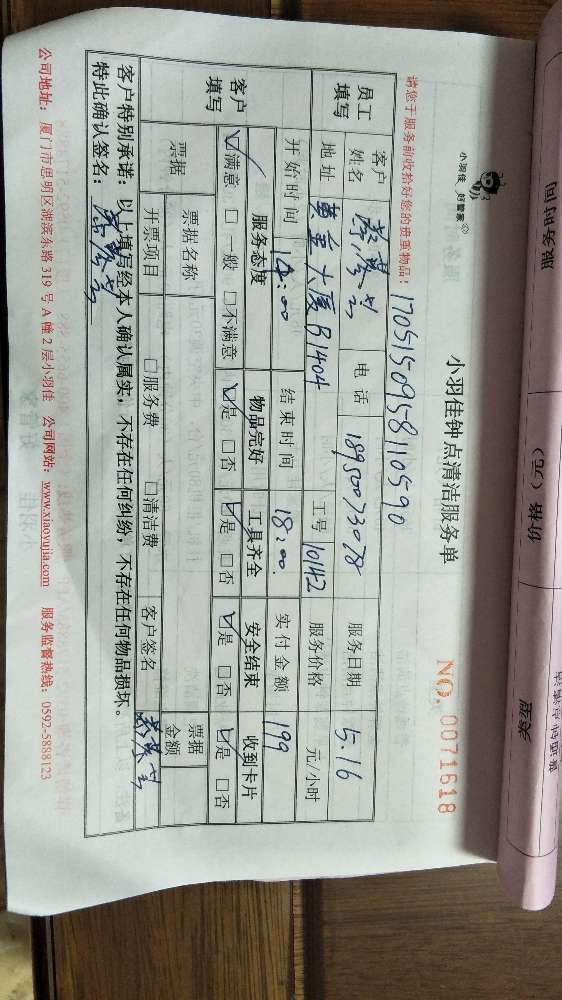 小羽佳 好管家
小羽佳钟点清洁服务单
NO. 0071618
请您于服务前收拾好您的贵重物品:
1705150958110590
员工填写 客户姓名 电话 18950073078 服务日期 5.16
地址 大厦B1404 工号 10142 服务价格 元/小时
开始时间 14:00 结束时间 18:00 实付金额 199
客户填写 服务态度 物品完好 工具齐全 安全结束 收到卡片
☑满意 □一般 □不满意 ☑是 □否 ☑是 □否 ☑是 □否 ☑是 □否
票据 票据名称 票据金额
开票项目 □服务费 □清洁费 客户签名
客户特别承诺:以上填写经本人确认属实,不存在任何纠纷,不存在任何物品损坏。
特此确认签名:
公司地址:厦门市思明区湖滨东路319号A幢2层小羽佳 公司网站:www.xiaoyujia.com 服务监督热线:0592-5888123
服务时间
价格(元)